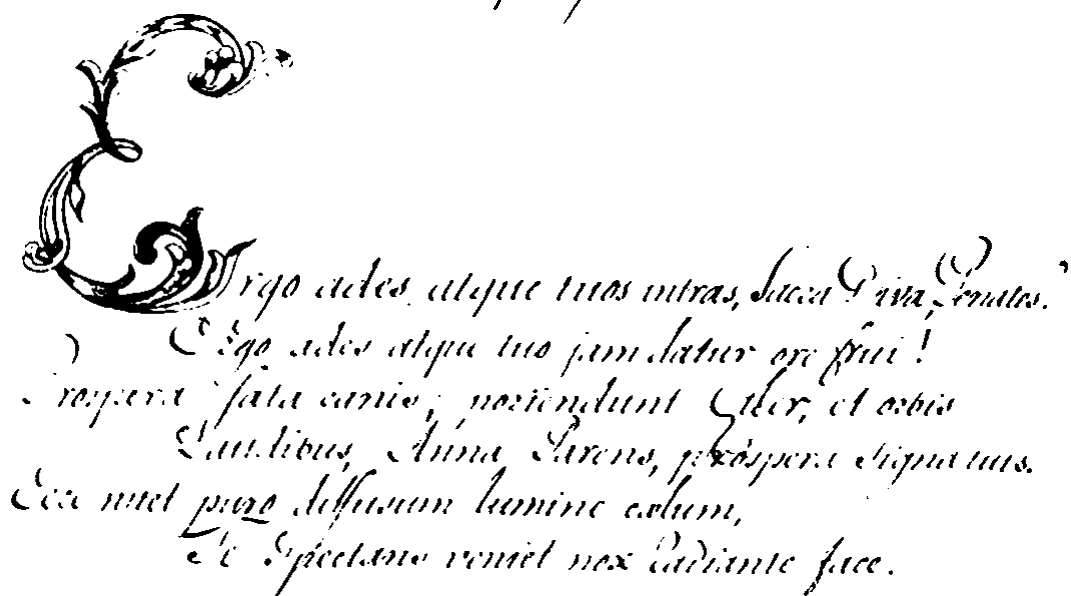 Ergo ades atque tuos intras, Sacra Diva, Penates.
Ergo ades atque tuo jam datur ore frui!
Prospera fata canis; portendunt Æther, et orbis
Laudibus, Anna Parens, prospera signa tuis.
Ecce nitet puro diffusum lumine cælum,
Te Spectans veniet nox Radiante face.